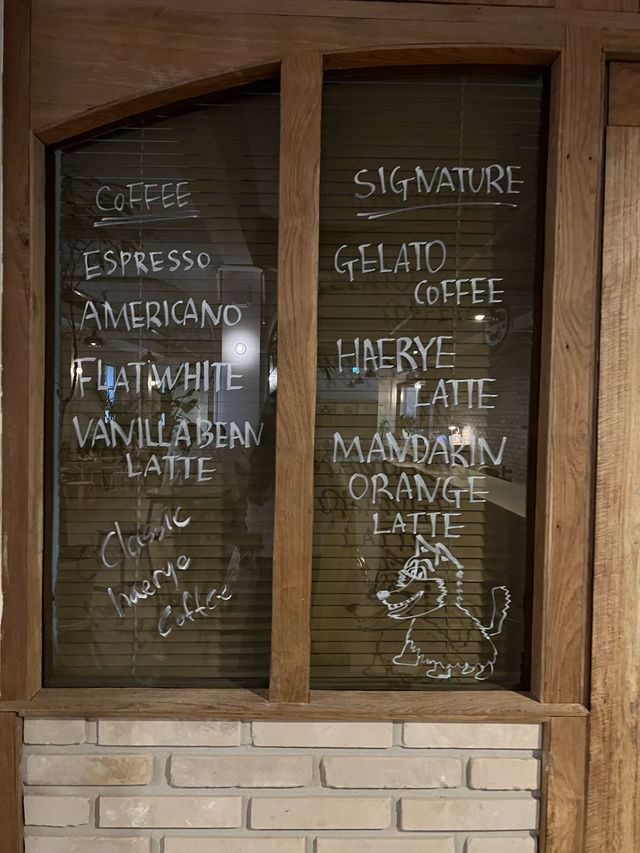 COFFEE
ESPRESSO
AMERICANO
FLAT WHITE
VANILLA BEAN
LATTE
Classic
haerye
Coffee
SIGNATURE
GELATO
COFFEE
HAERYE
LATTE
MANDARIN
ORANGE
LATTE